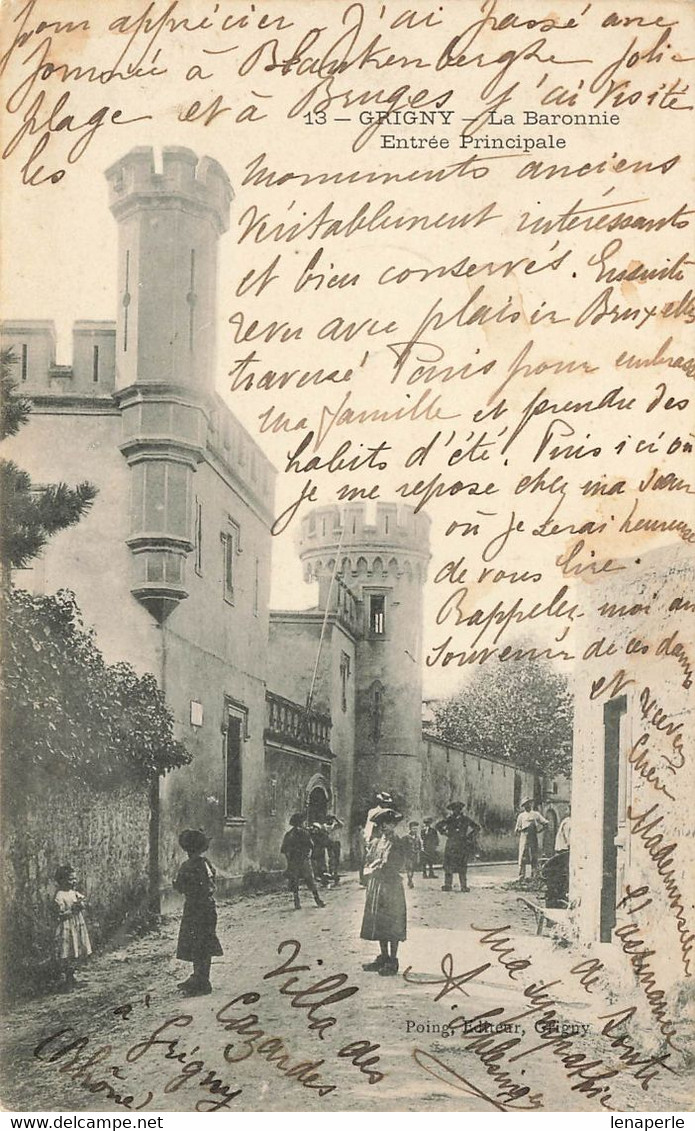 pour apprécier. J'ai passé une
journée à Blankenberghe jolie
plage et à Bruges j'ai visité
les
13 — GRIGNY — La Baronnie
Entrée Principale
monuments anciens
véritablement intéressants
et bien conservés. Ensuite
revu avec plaisir Bruxelles
traversé Paris pour embrasser
ma famille et prendre des
habits d'été. Puis ici où
je me repose chez ma sœur
où je serai heureuse
de vous lire.
Rappelez moi au
souvenir de ces dames
et
recevez
cher Mademoiselle
l'assurance
de toute
ma sympathie
A Schlesinger
Villa des
Cazardes
à Grigny
(Rhône)
Poing, Editeur, Grigny
lenaperle